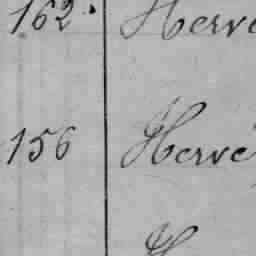 162. Hervé
156 Hervé